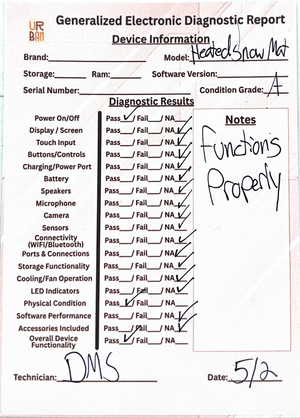 UR
BAN
Generalized Electronic Diagnostic Report
Device Information
Brand:____ Model: Heated Snow Mat
Storage:____ Ram:____ Software Version:____
Serial Number:____ Condition Grade: A
Diagnostic Results
Power On/Off Pass ✓/ Fail__/ NA__
Display / Screen Pass__/ Fail__/ NA ✓
Touch Input Pass__/ Fail__/ NA ✓
Buttons/Controls Pass__/ Fail__/ NA ✓
Charging/Power Port Pass__/ Fail__/ NA ✓
Battery Pass__/ Fail__/ NA ✓
Speakers Pass__/ Fail__/ NA ✓
Microphone Pass__/ Fail__/ NA ✓
Camera Pass__/ Fail__/ NA ✓
Sensors Pass__/ Fail__/ NA ✓
Connectivity
(WIFI/Bluetooth) Pass__/ Fail__/ NA ✓
Ports & Connections Pass__/ Fail__/ NA ✓
Storage Functionality Pass__/ Fail__/ NA ✓
Cooling/Fan Operation Pass__/ Fail__/ NA ✓
LED Indicators Pass__/ Fail__/ NA ✓
Physical Condition Pass ✓/ Fail__/ NA__
Software Performance Pass__/ Fail__/ NA ✓
Accessories Included Pass__/ Fail__/ NA ✓
Overall Device
Functionality Pass ✓/ Fail__/ NA__
Notes
Functions
Properly
Technician: DMS Date: 5/2